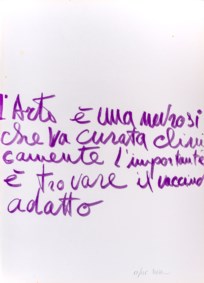 l'Arte è una nevrosi
che va curata clini
camente l'importante
è trovare il vaccino
adatto